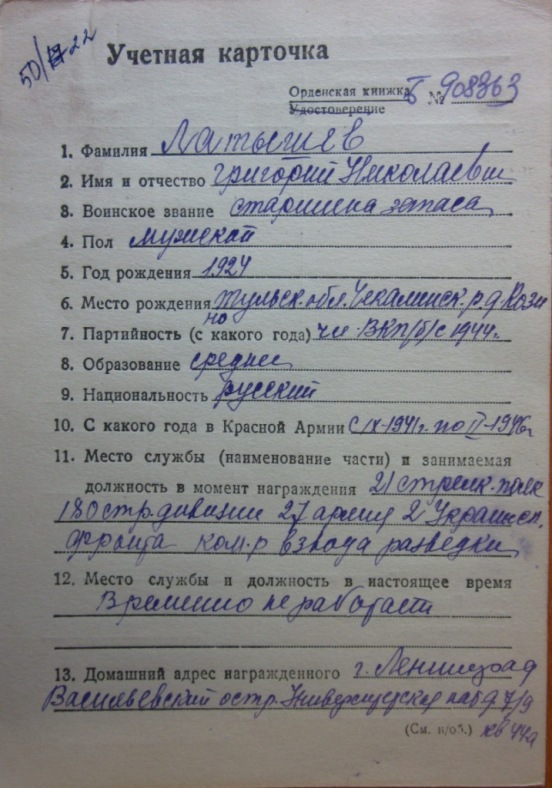 50/ 22
Учетная карточка
Орденская книжка Б № 908363
Удостоверение
1. Фамилия Латышев
2. Имя и отчество Григорий Николаевич
3. Воинское звание старшина запаса
4. Пол мужской
5. Год рождения 1924
6. Место рождения Тульск. обл. Чекалинск. р. д Кози
но
7. Партийность (с какого года) чл. ВКП/б/ с 1944г.
8. Образование среднее
9. Национальность русский
10. С какого года в Красной Армии с IX-1941г. по II-1946г
11. Место службы (наименование части) и занимаемая
должность в момент награждения 21 стрелк. полк
180 стр. дивизии 27 армия 2 Украинск.
фронта ком-р взвода разведки
12. Место службы и должность в настоящее время
Временно не работает
13. Домашний адрес награжденного г. Ленинград
Васильевский остр. Университетская наб д 7/9
(См. н/об.) кв 44а